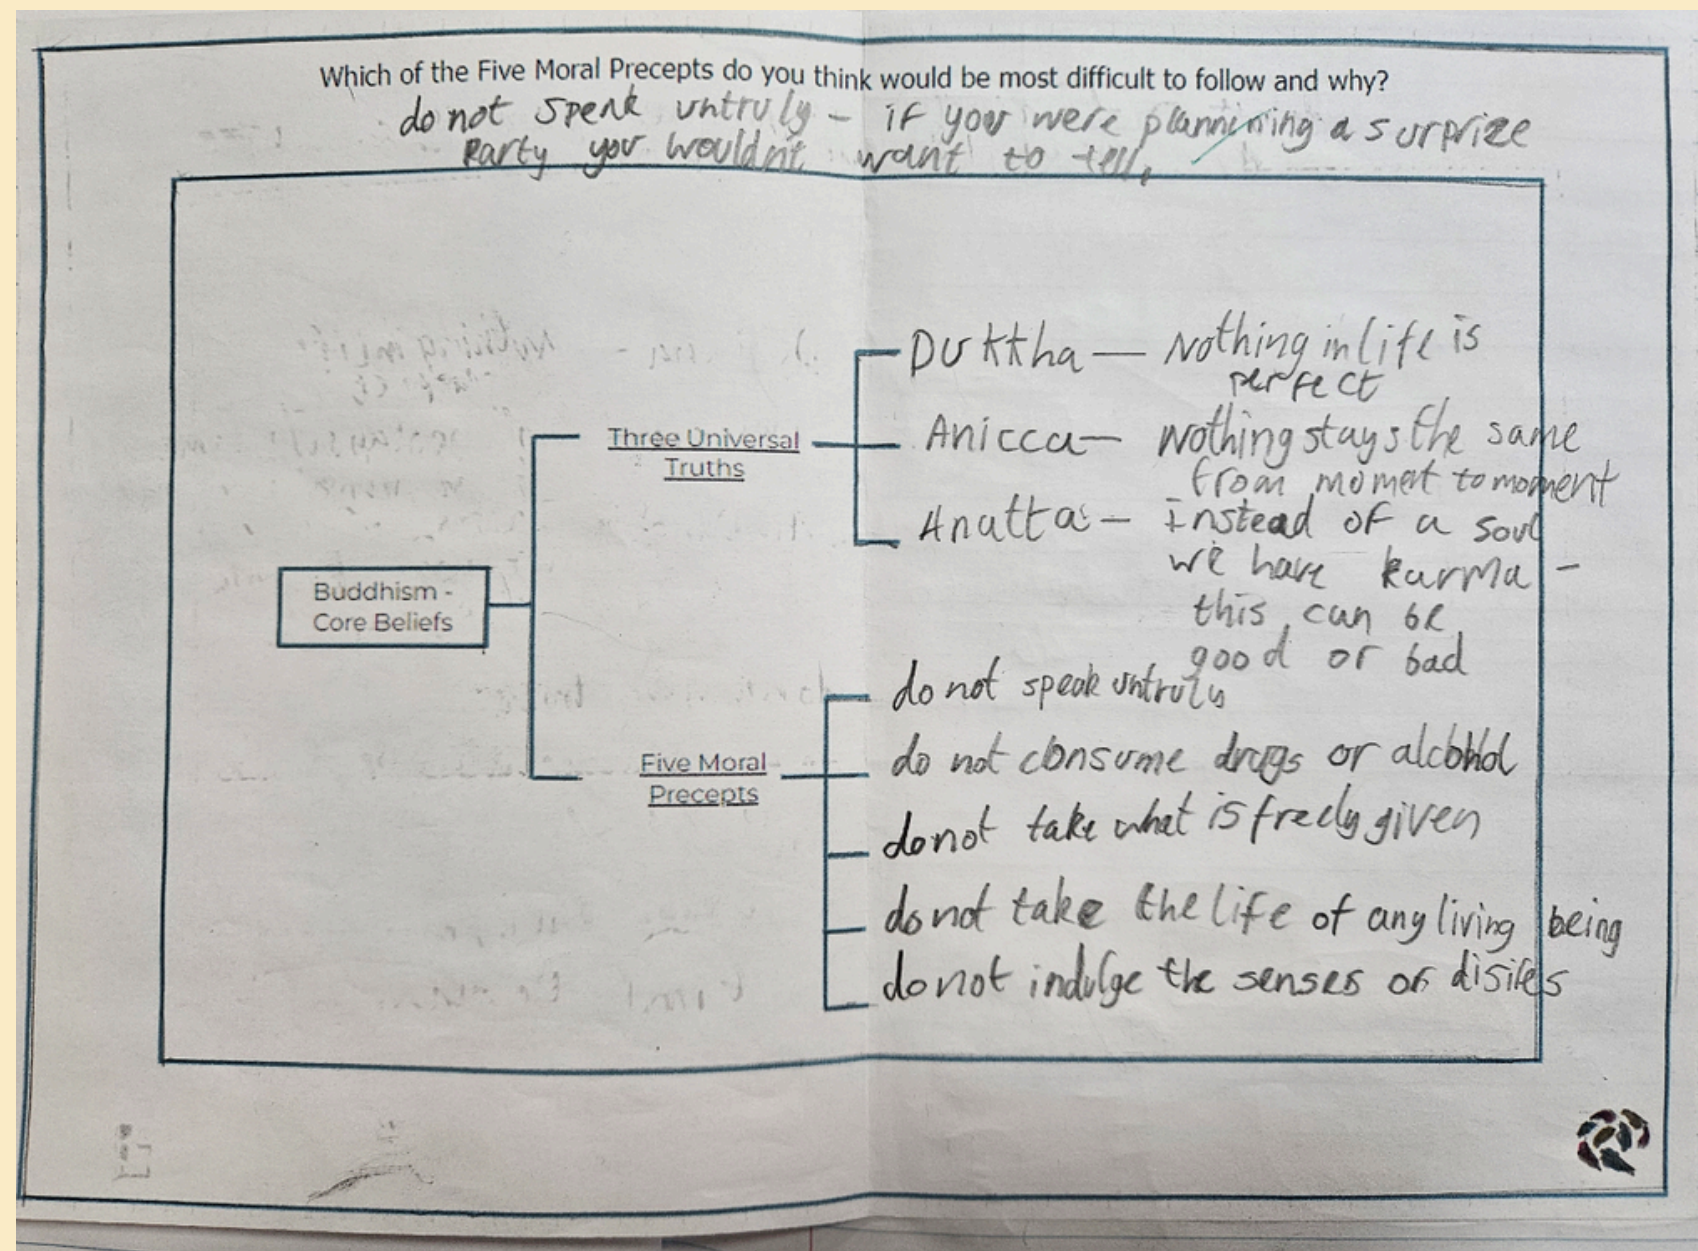 Which of the Five Moral Precepts do you think would be most difficult to follow and why?
do not speak untruly - if you were plannining a surprize
party you wouldn't want to tell.
Dukkha — Nothing in life is
perfect
Three Universal
Truths
Anicca — Nothing stays the same
from momet to moment
Anatta — instead of a soul
we have karma -
this can be
good or bad
Buddhism -
Core Beliefs
Five Moral
Precepts
do not speak untruly
do not consume drugs or alcohol
do not take what is freely given
do not take the life of any living being
do not indulge the senses or disires